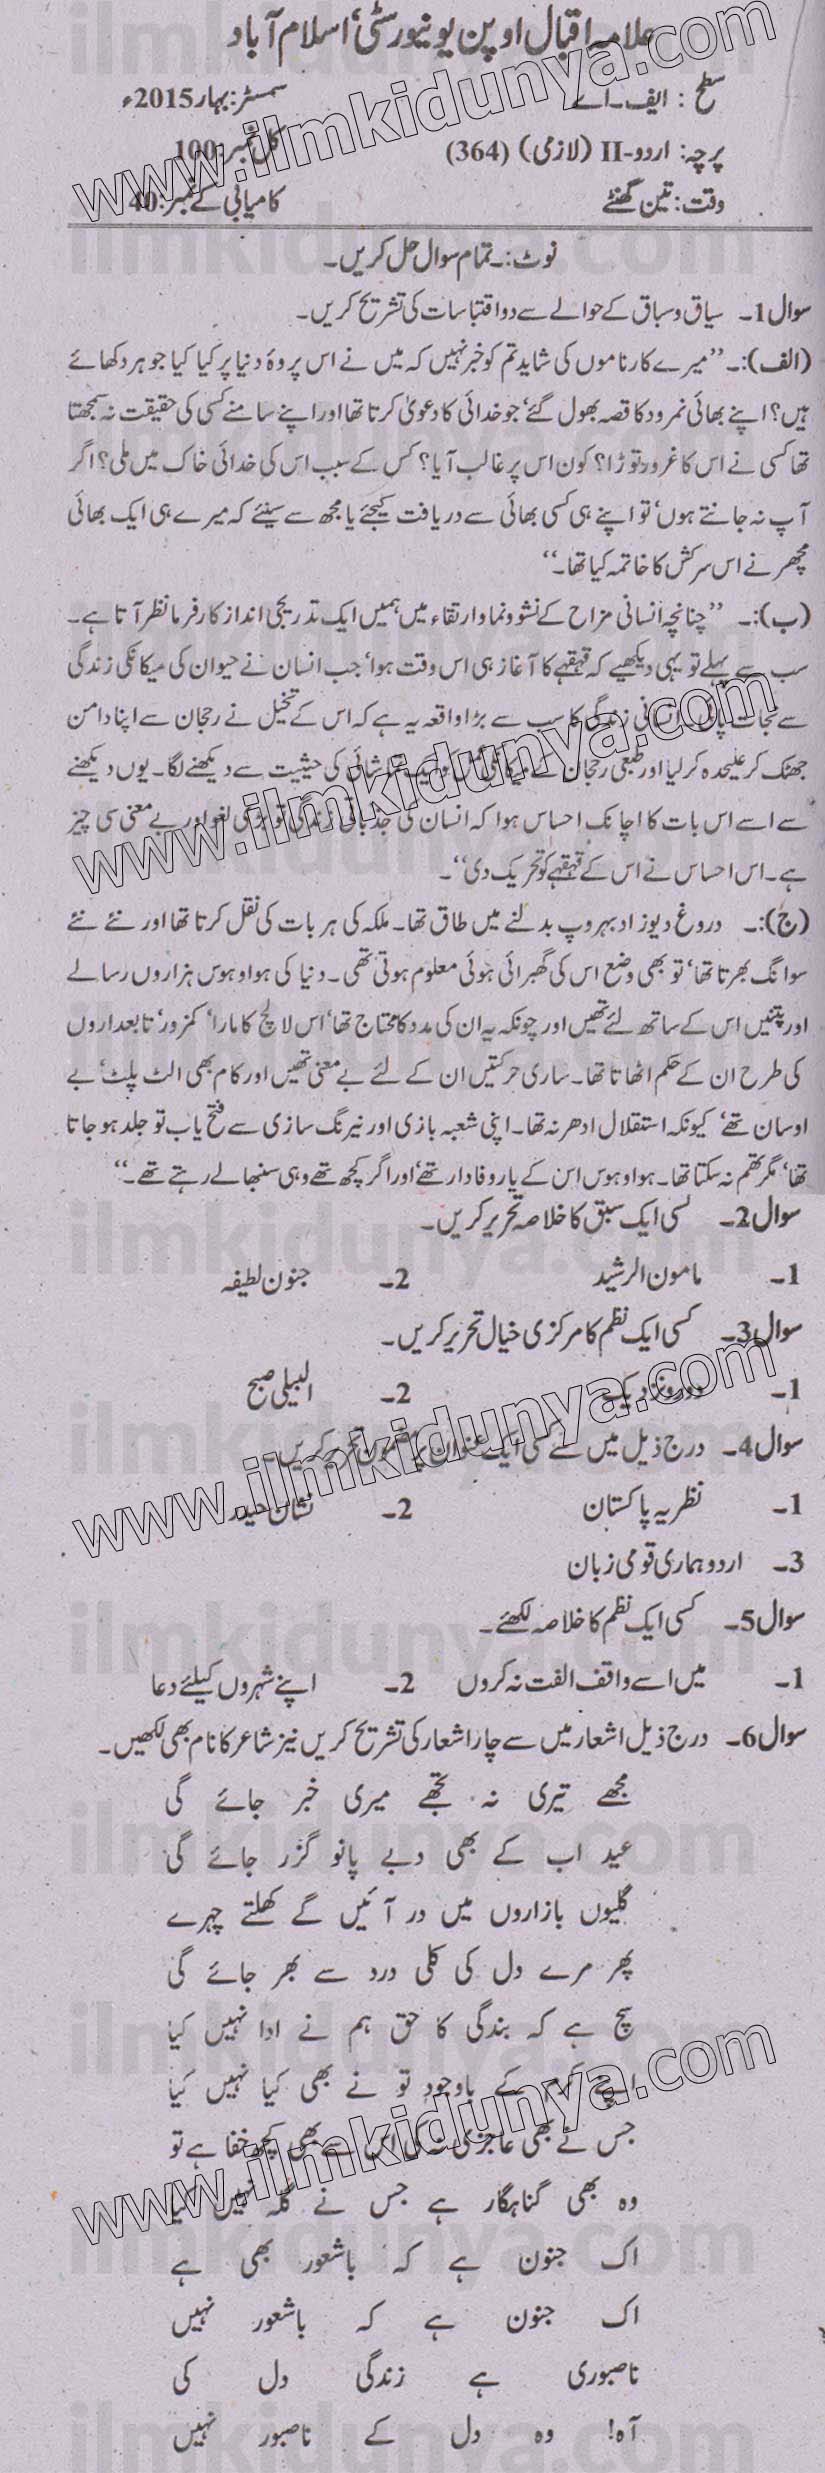 علامہ اقبال اوپن یونیورسٹی، اسلام آباد
سطح: ایف۔اے سمسٹر: بہار 2015ء
پرچہ: اردو-II (لازمی) (364) کل نمبر: 100
وقت: تین گھنٹے کامیابی کے نمبر: 40
نوٹ:۔ تمام سوال حل کریں۔
سوال 1۔ سیاق و سباق کے حوالے سے دو اقتباسات کی تشریح کریں۔
(الف):۔ ’’میرے کارناموں کی شاید تم کو خبر نہیں کہ میں نے اس پردۂ دنیا پر کیا کیا جوہر دکھائے
ہیں؟ اپنے بھائی نمرود کا قصہ بھول گئے‘ جو خدائی کا دعویٰ کرتا تھا اور اپنے سامنے کسی کی حقیقت نہ سمجھتا
تھا کسی نے اس کا غرور توڑا؟ کون اس پر غالب آیا؟ کس کے سبب اس کی خدائی خاک میں ملی؟ اگر
آپ نہ جانتے ہوں‘ تو اپنے ہی کسی بھائی سے دریافت کیجئے یا مجھ سے سنیئے کہ میرے ہی ایک بھائی
مچھر نے اس سرکش کا خاتمہ کیا تھا۔‘‘
(ب):۔ ’’چنانچہ انسانی مزاح کے نشوونما و ارتقاء میں ہمیں ایک تدریجی انداز کارفرما نظر آتا ہے۔
سب سے پہلے تو یہی دیکھیے کہ قہقہے کا آغاز ہی اس وقت ہوا‘ جب انسان نے حیوان کی میکانکی زندگی
سے نجات پائی۔ انسانی زندگی کا سب سے بڑا واقعہ یہ ہے کہ اس کے تخیل نے رجحان سے اپنا دامن
جھٹک کر علیحدہ کر لیا اور طبعی رجحان کے میکانکی عمل کو ایک تماشائی کی حیثیت سے دیکھنے لگا۔ یوں دیکھنے
سے اسے اس بات کا اچانک احساس ہوا کہ انسان کی جذباتی زندگی تو بڑی لغو اور بے معنی سی چیز
ہے۔ اس احساس نے اس کے قہقہے کو تحریک دی‘‘۔
(ج):۔ دروغ دیوزاد بہروپ بدلنے میں طاق تھا۔ ملکہ کی ہر بات کی نقل کرتا تھا اور نئے نئے
سوانگ بھرتا تھا‘ تو بھی وضع اس کی گھبرائی ہوئی معلوم ہوتی تھی۔ دنیا کی ہوا و ہوس ہزاروں رسالے
اور پلٹنیں اس کے ساتھ لئے تھیں اور چونکہ یہ ان کی مدد کا محتاج تھا‘ اس لالچ کا مارا‘ کمزور‘ تابعداروں
کی طرح ان کے حکم اٹھاتا تھا۔ ساری حرکتیں ان کے لئے بے معنی تھیں اور کام بھی الٹ پلٹ‘ بے
اوسان تھے‘ کیونکہ استقلال ادھر نہ تھا۔ اپنی شعبدہ بازی اور نیرنگ سازی سے فتح یاب تو جلد ہو جاتا
تھا‘ مگر تھم نہ سکتا تھا۔ ہوا و ہوس اس کے یار وفادار تھے‘ اور اگر کچھ تھے وہی سنبھالے رہتے تھے۔‘‘
سوال 2۔ کسی ایک سبق کا خلاصہ تحریر کریں۔
1۔ مامون الرشید 2۔ جنون لطیفہ
سوال 3۔ کسی ایک نظم کا مرکزی خیال تحریر کریں۔
1۔ دور و نزدیک 2۔ البیلی صبح
سوال 4۔ درج ذیل میں سے کسی ایک عنوان پر مضمون تحریر کریں۔
1۔ نظریہ پاکستان 2۔ نشان حیدر
3۔ اردو ہماری قومی زبان
سوال 5۔ کسی ایک نظم کا خلاصہ لکھئے۔
1۔ میں اسے واقف الفت نہ کروں 2۔ اپنے شہروں کیلئے دعا
سوال 6۔ درج ذیل اشعار میں سے چار اشعار کی تشریح کریں نیز شاعر کا نام بھی لکھیں۔
مجھے تیری نہ تجھے میری خبر جائے گی
عید اب کے بھی دبے پانو گزر جائے گی
گلیوں بازاروں میں در آئیں گے کھلتے چہرے
پھر مرے دل کی گلی درد سے بھر جائے گی
سچ ہے کہ بندگی کا حق ہم نے ادا نہیں کیا
اپنے کرم کے باوجود تو نے بھی کیا نہیں کیا
جس نے بھی عاجزی نہ کی اس سے بھی کچھ خفا ہے تو
وہ بھی گناہگار ہے جس نے گلہ نہیں کیا
اک جنون ہے کہ باشعور بھی ہے
اک جنون ہے کہ باشعور نہیں
ناصبوری ہے زندگی دل کی
آہ! وہ دل کے ناصبور نہیں
www.ilmkidunya.com
www.ilmkidunya.com
www.ilmkidunya.com
www.ilmkidunya.com